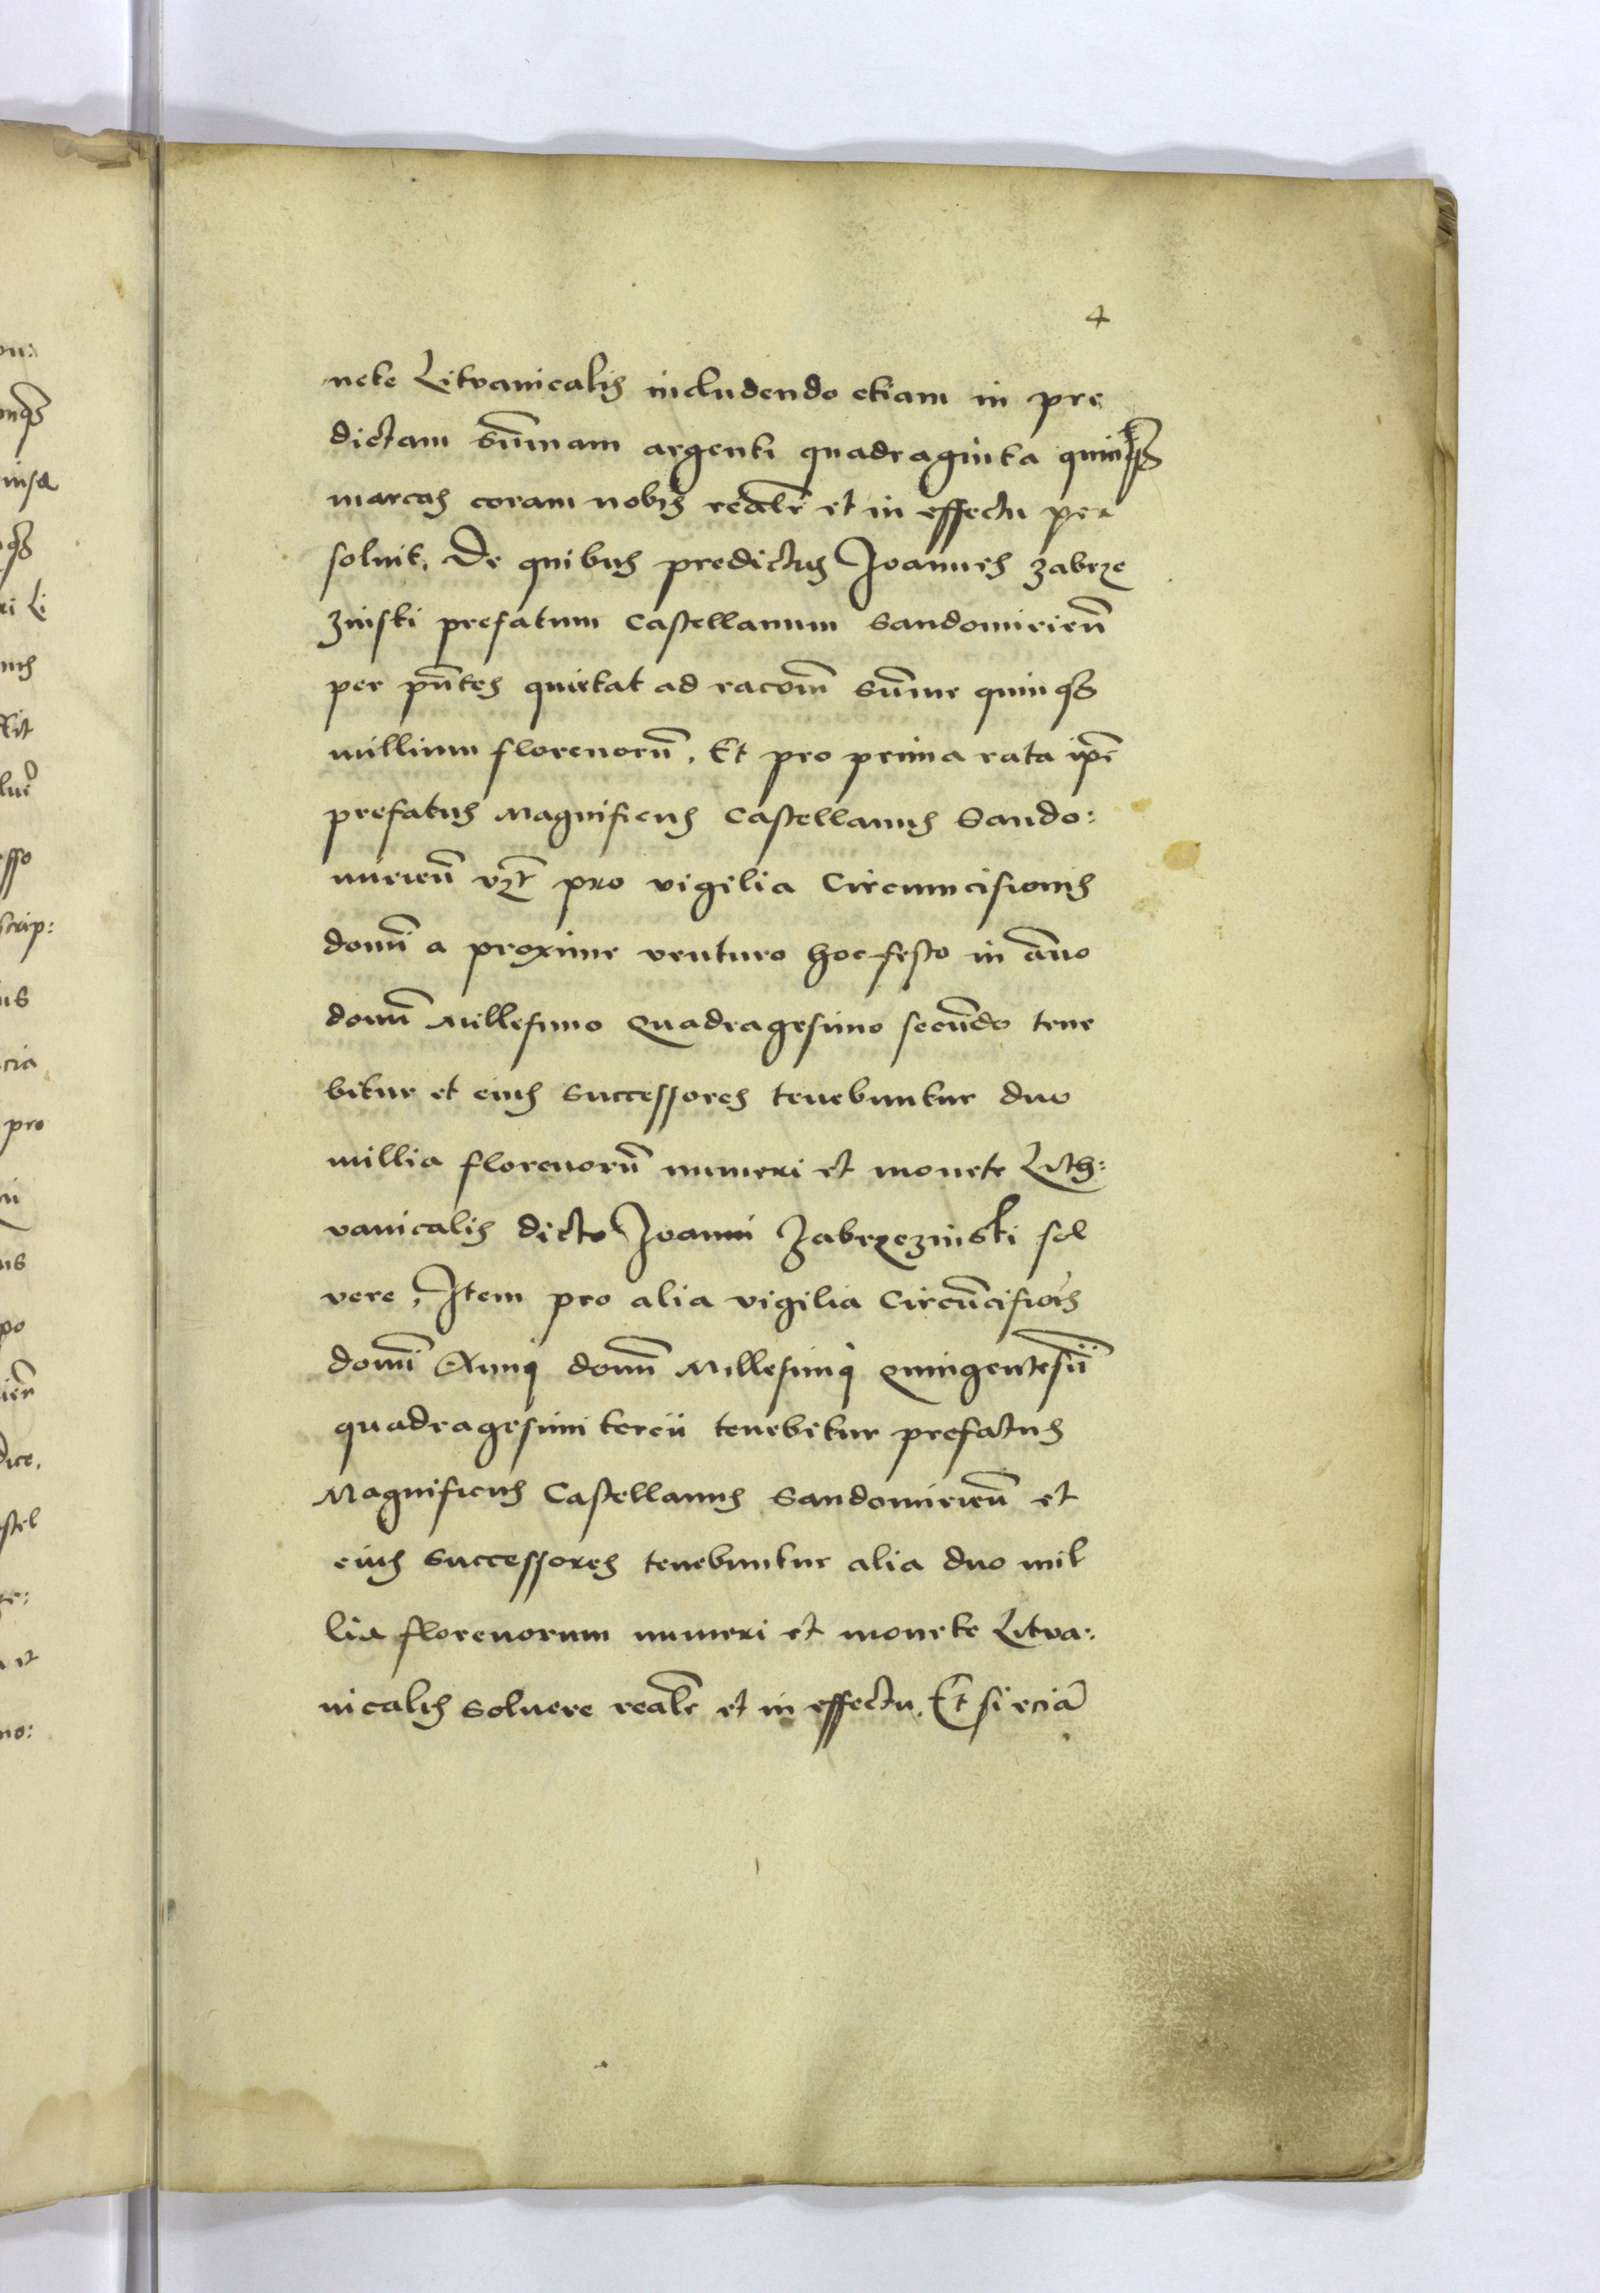 4
nete Litvanicalis includendo etiam in pre
dictam sum̄mam argenti quadraginta quinq3
marcas coram nobis realr̄ et in effectu per
soluit. De quibus predictus Joannes Zabrze
zinski prefatum Castellanum Sandomirien̄
per pn̄tes quietat ad racōm sum̄me quinq3
millium florenorū. Et pro prima rata ip̄e
prefatus Magnificus Castellanus Sando:
mirien̄ vz̄ pro vigilia Circumcisionis
domī a proxime venturo hoc festo in an̄o
domī Millesimo Quadragesimo secūndo tene
bitur et eius Successores tenebuntur duo
millia florenorū numeri et monete Lith:
vanicalis dicto Joanni Zabrzezinski sol
vere, Item pro alia vigilia Circūcisiōis
domī Anni domī Millesimi Quingentesīi
quadragesimi tercii tenebitur prefatus
Magnificus Castellanus Sandomirien̄ et
eius Successores tenebuntur alia duo mil
lia florenorum numeri et monete Litva:
nicalis Soluere realr̄ et in effectu. Et si eciā